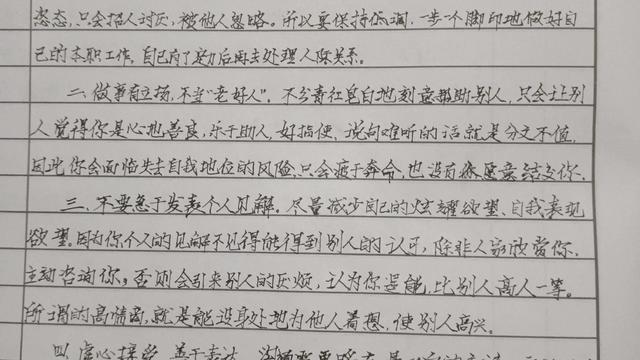 姿态,只会招人讨厌,被他人忽略。所以要保持低调,一步一个脚印地做好自
己的本职工作,自己有了定力后再去处理人际关系。
二、做事有立场,不当“老好人”。不分青红皂白地刻意帮助别人,只会让别
人觉得你是心地善良,乐于助人,好指使,说句难听的话就是分文不值,
因此你会面临失去自我地位的风险,只会疲于奔命,也没有人愿意结交你。
三、不要急于发表个人见解。尽量减少自己的炫耀欲望、自我表现
欲望。因为你个人的见解不见得能得到别人的认可,除非人家欣赏你,
主动咨询你。否则会引来别人的厌烦,认为你逞能,比别人高人一等。
所谓的高情商,就是能设身处地为他人着想,使别人高兴。
四、虚心接受,善于表达